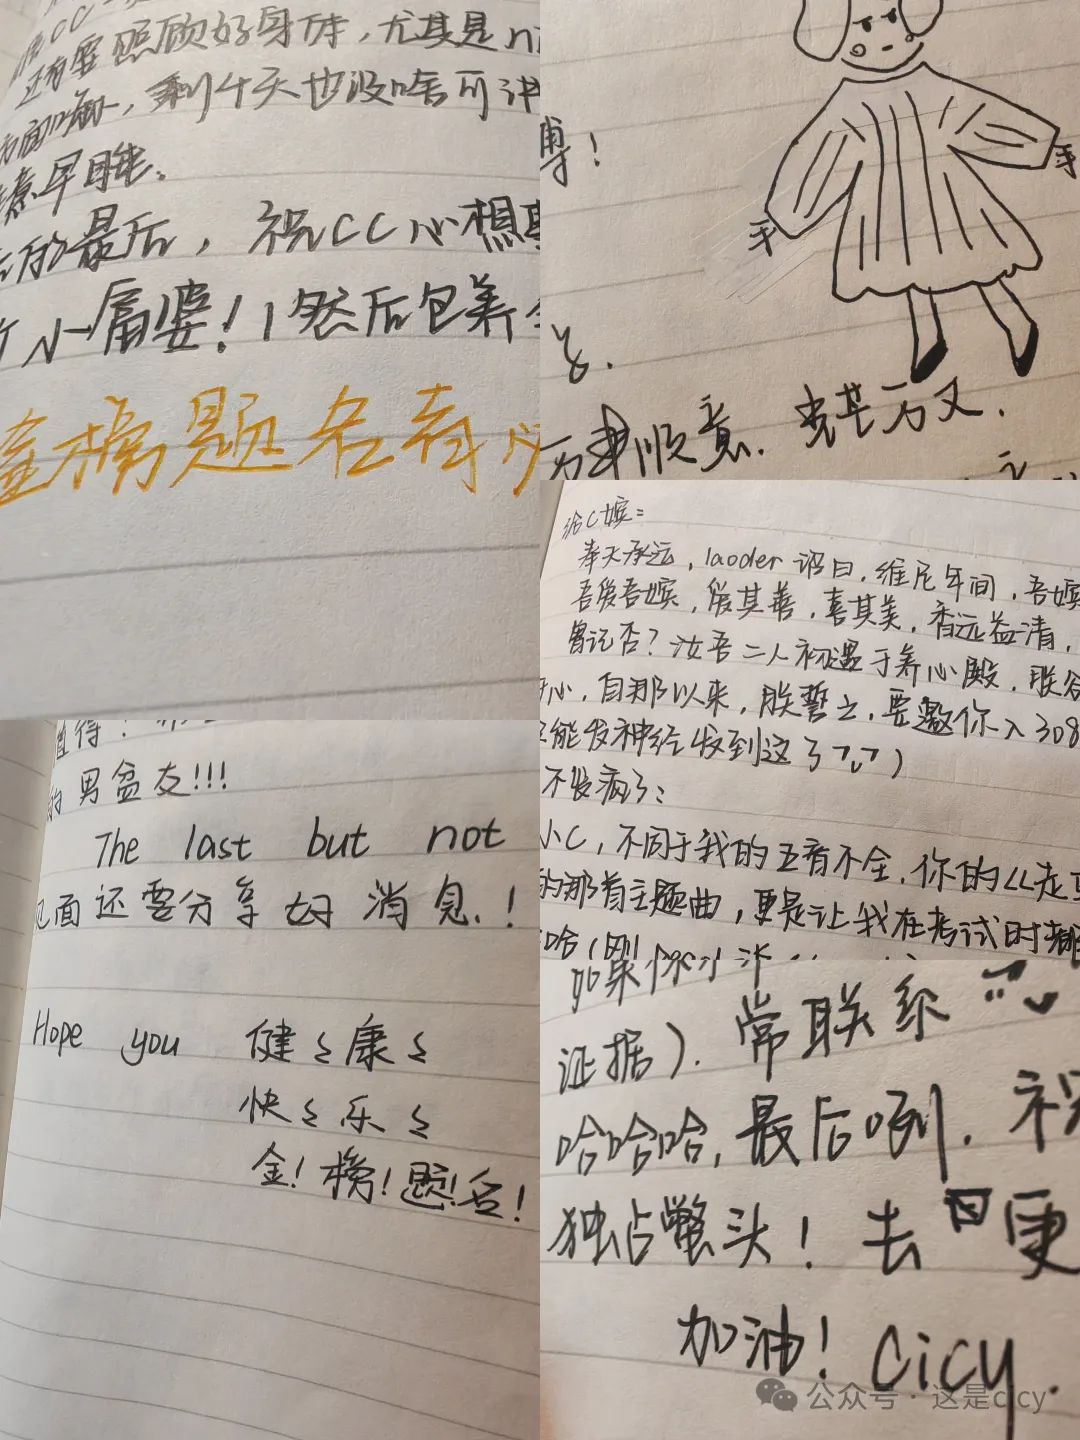 还有要照顾好身体,尤其是
剩4天也没啥可
早睡。
最后,祝CC心想
小富婆!然后包养
金榜题名
博!
手
手
万事顺意.
给C嫔:
奉天承运,laoder诏曰,维尼年间,吾嫔
吾爱吾嫔,爱其善,喜其美,香远益清,
曾记否?汝吾二人初遇于养心殿,朕
心,自那以来,朕誓之,要邀你入308
能发神经发到这了
不发病了:
小C,不同于我的五音不全,你的
的那首主题曲,更是让我在考试时
哈
值得!
的男盆友!!!
The last but not
见面还要分享好消息!
Hope you 健健康康
快快乐乐
金!榜!题!名!
如果你
证据).常联系
哈哈哈,最后咧.祝
独占鳌头!去日更
加油!Cicy.
公众号·这是cicy